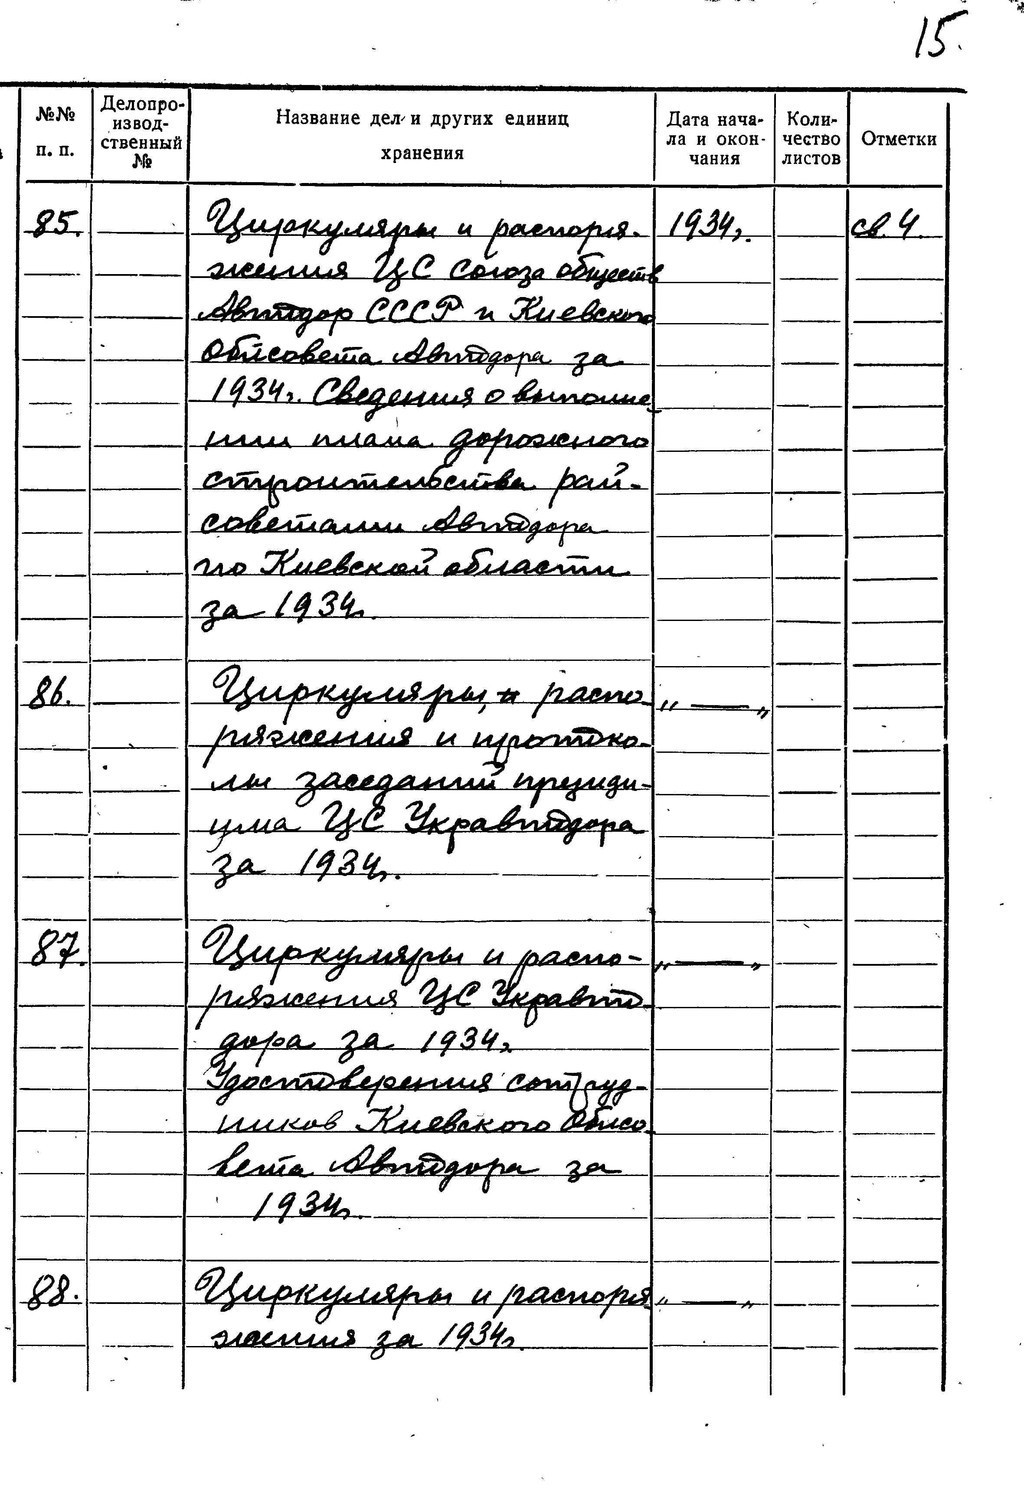 15.
№№ п. п.
Делопро-извод-ственный №
Название дел и других единиц хранения
Дата нача-ла и окон-чания
Коли-чество листов
Отметки
85. Циркуляры и распоря- 1934г. св. 4.
жения ЦС союза обществ
Автодор СССР и Киевского
Облсовета Автодора за
1934г. Сведения о выполне
нии плана дорожного
строительства рай-
советами Автодора
по Киевской области
за 1934г.
86. Циркуляры, распо- „ — „
ряжения и протоко-
лы заседаний президи-
ума ЦС Укравтодора
за 1934г.
87. Циркуляры и распо- „ — „
ряжения ЦС Укравто-
дора за 1934г.
Удостоверения сотруд-
ников Киевского Облсо-
вета Автодора за
1934г.
88. Циркуляры и распоря „ — „
жения за 1934г.